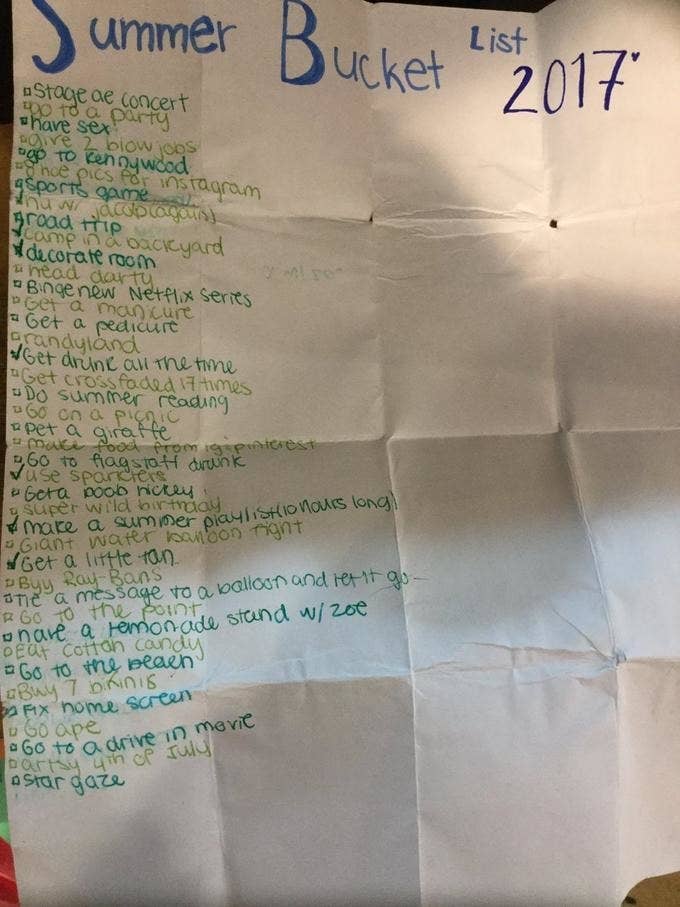 Summer Bucket List
2017
Stage ae concert
go to a party
have sex
give 2 blow jobs
go to Kennywood
hoe pics for instagram
sports game
w/ Jacob (again)
road trip
Camp in a backyard
decorate room
head darty
Binge new Netflix series
Get a manicure
Get a pedicure
randyland
Get drunk all the time
Get crossfaded 17 times
Do summer reading
Go on a picnic
pet a giraffe
make food from pinterest
Go to flagstaff drunk
use sparklers
Get a boob hickey
super wild birthday
make a summer playlist (10 hours long)
Giant water balloon fight
Get a little tan
Buy Ray-Bans
Tie a message to a balloon and let it go
Go to the point
have a lemonade stand w/ zoe
Eat cotton candy
Go to the beach
Buy 7 bikinis
Fix home screen
Go ape
Go to a drive in movie
partsy 4th of July
star gaze